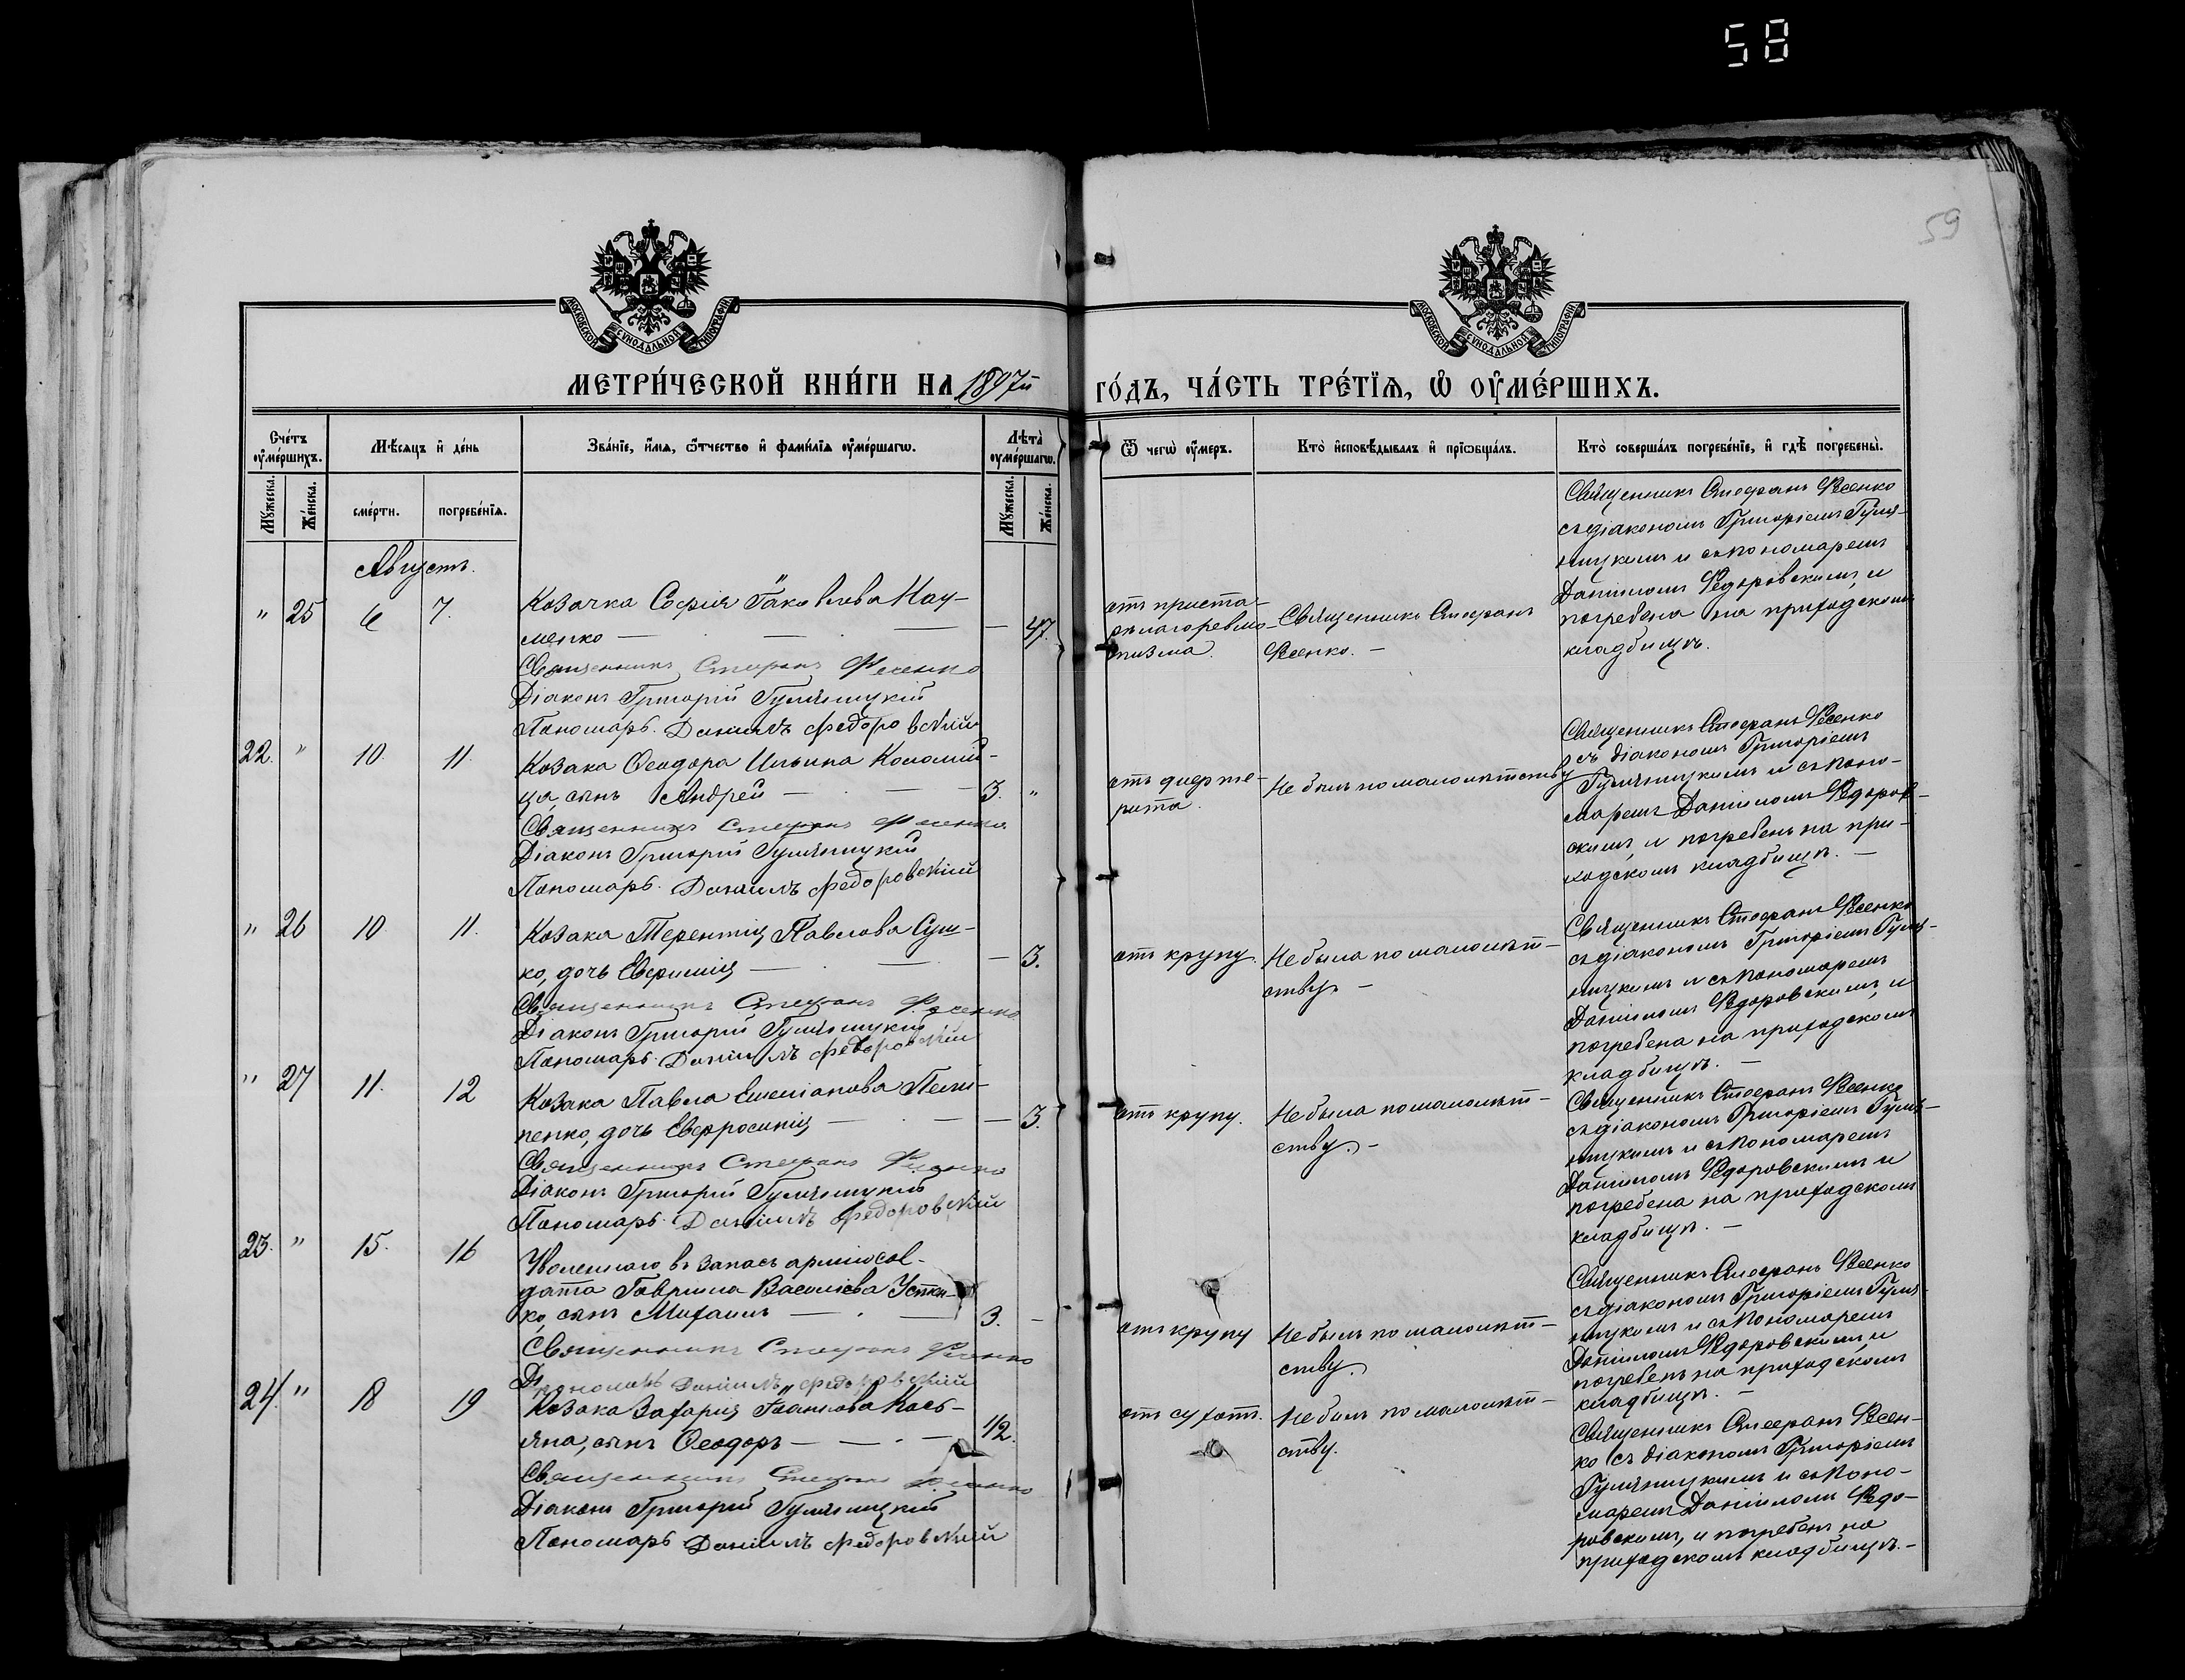 58
59
МОСКОВСКОЙ СѴНОДАЛЬНОЙ ТИПОГРАФІИ
МОСКОВСКОЙ СѴНОДАЛЬНОЙ ТИПОГРАФІИ
МЕТРИ́ЧЕСКОЙ КНИ́ГИ НА 1897й го́дъ, ча́сть тре́тїѧ, ѡ҆ ᲂу҆ме́ршихъ.
Сче́тъ ᲂу҆ме́ршихъ.
Мѣ́сѧцъ и҆ де́нь
Зва́нїе, и҆́мѧ, ѻ҆́тчество и҆ фами́лїѧ ᲂу҆ме́ршагѡ.
Лѣ́та ᲂу҆ме́ршагѡ.
Ѿ чегѡ̀ ᲂу҆́меръ.
Кто̀ и҆сповѣ́дывалъ и҆ прїѡбща́лъ.
Кто̀ соверша́лъ погребе́нїе, и҆ гдѣ̀ погребены̀.
Мꙋ́жеска.
Же́нска.
сме́рти.
погребе́нїѧ.
Мꙋ́жеска.
Же́нска.
Августъ.
" 25 6 7.
Козачка Софія Іаковлева Нау-
менко — — — — 47.
Священникъ Стефанъ Фесенко
Діаконъ Григорій Гуляницкій
Пономарь Даніилъ Федоровскій
отъ приста-
ризма.
Священникъ Стефанъ
Фесенко. —
Священникъ Стефанъ Фесенко
съ діакономъ Григоріемъ Гуля-
ницкимъ и съ пономаремъ
Даніиломъ Федоровскимъ, и
погребена на приходскомъ
кладбищѣ.
22. " 10. 11.
Козака Ѳеодора Ильина Коломій-
ца, сынъ Андрей — — — 3. "
Священникъ Стефанъ Фесенко
Діаконъ Григорій Гуляницкій
Пономарь Даніилъ Федоровскій
отъ дифте-
рита.
Не былъ по малолѣтству
Священникъ Стефанъ Фесенко
съ діакономъ Григоріемъ
Гуляницкимъ и съ поно-
маремъ Даніиломъ Федоров-
скимъ, и погребенъ на при-
ходскомъ кладбищѣ. —
" 26 10 11.
Козака Терентія Павлова Суш-
ко, дочь Евфимія — — — 3.
Священникъ Стефанъ Фесенко
Діаконъ Григорій Гуляницкій
Пономарь Даніилъ Федоровскій
отъ крупу.
Не была по малолѣт-
ству. —
Священникъ Стефанъ Фесенко
съ діакономъ Григоріемъ Гуля-
ницкимъ и съ пономаремъ
Даніиломъ Федоровскимъ, и
погребена на приходскомъ
кладбищѣ. —
" 27 11. 12
Козака Павла Емеліанова Пили-
пенко, дочь Евфросинія — — — 3.
Священникъ Стефанъ Фесенко
Діаконъ Григорій Гуляницкій
Пономарь Даніилъ Федоровскій
отъ крупу.
Не была по малолѣт-
ству. —
Священникъ Стефанъ Фесенко
съ діакономъ Григоріемъ Гуля-
ницкимъ и съ пономаремъ
Даніиломъ Федоровскимъ и
погребена на приходскомъ
кладбищѣ. —
23. " 15. 16
Уволеннаго въ запасъ арміи сол-
дата Гавріила Василіева
ко, сынъ Михаилъ — — 3. —
Священникъ Стефанъ Фесенко
Пономарь Даніилъ Федоровскій
отъ крупу
Не былъ по малолѣт-
ству.
Священникъ Стефанъ Фесенко
съ діакономъ Григоріемъ Гуля-
ницкимъ и съ пономаремъ
Даніиломъ Федоровскимъ, и
погребенъ на приходскомъ
кладбищѣ. —
24. " 18 19
Козака Захарія Іоаннова Кась-
яна, сынъ Ѳеодоръ — — — 1/2.
Священникъ Стефанъ Фесенко
Діаконъ Григорій Гуляницкій
Пономарь Даніилъ Федоровскій
отъ сухотъ.
Не былъ по малолѣт-
ству.
Священникъ Стефанъ Фесен-
ко съ діакономъ Григоріемъ
Гуляницкимъ и съ поно-
маремъ Даніиломъ Федо-
ровскимъ, и погребенъ на
приходскомъ кладбищѣ. —